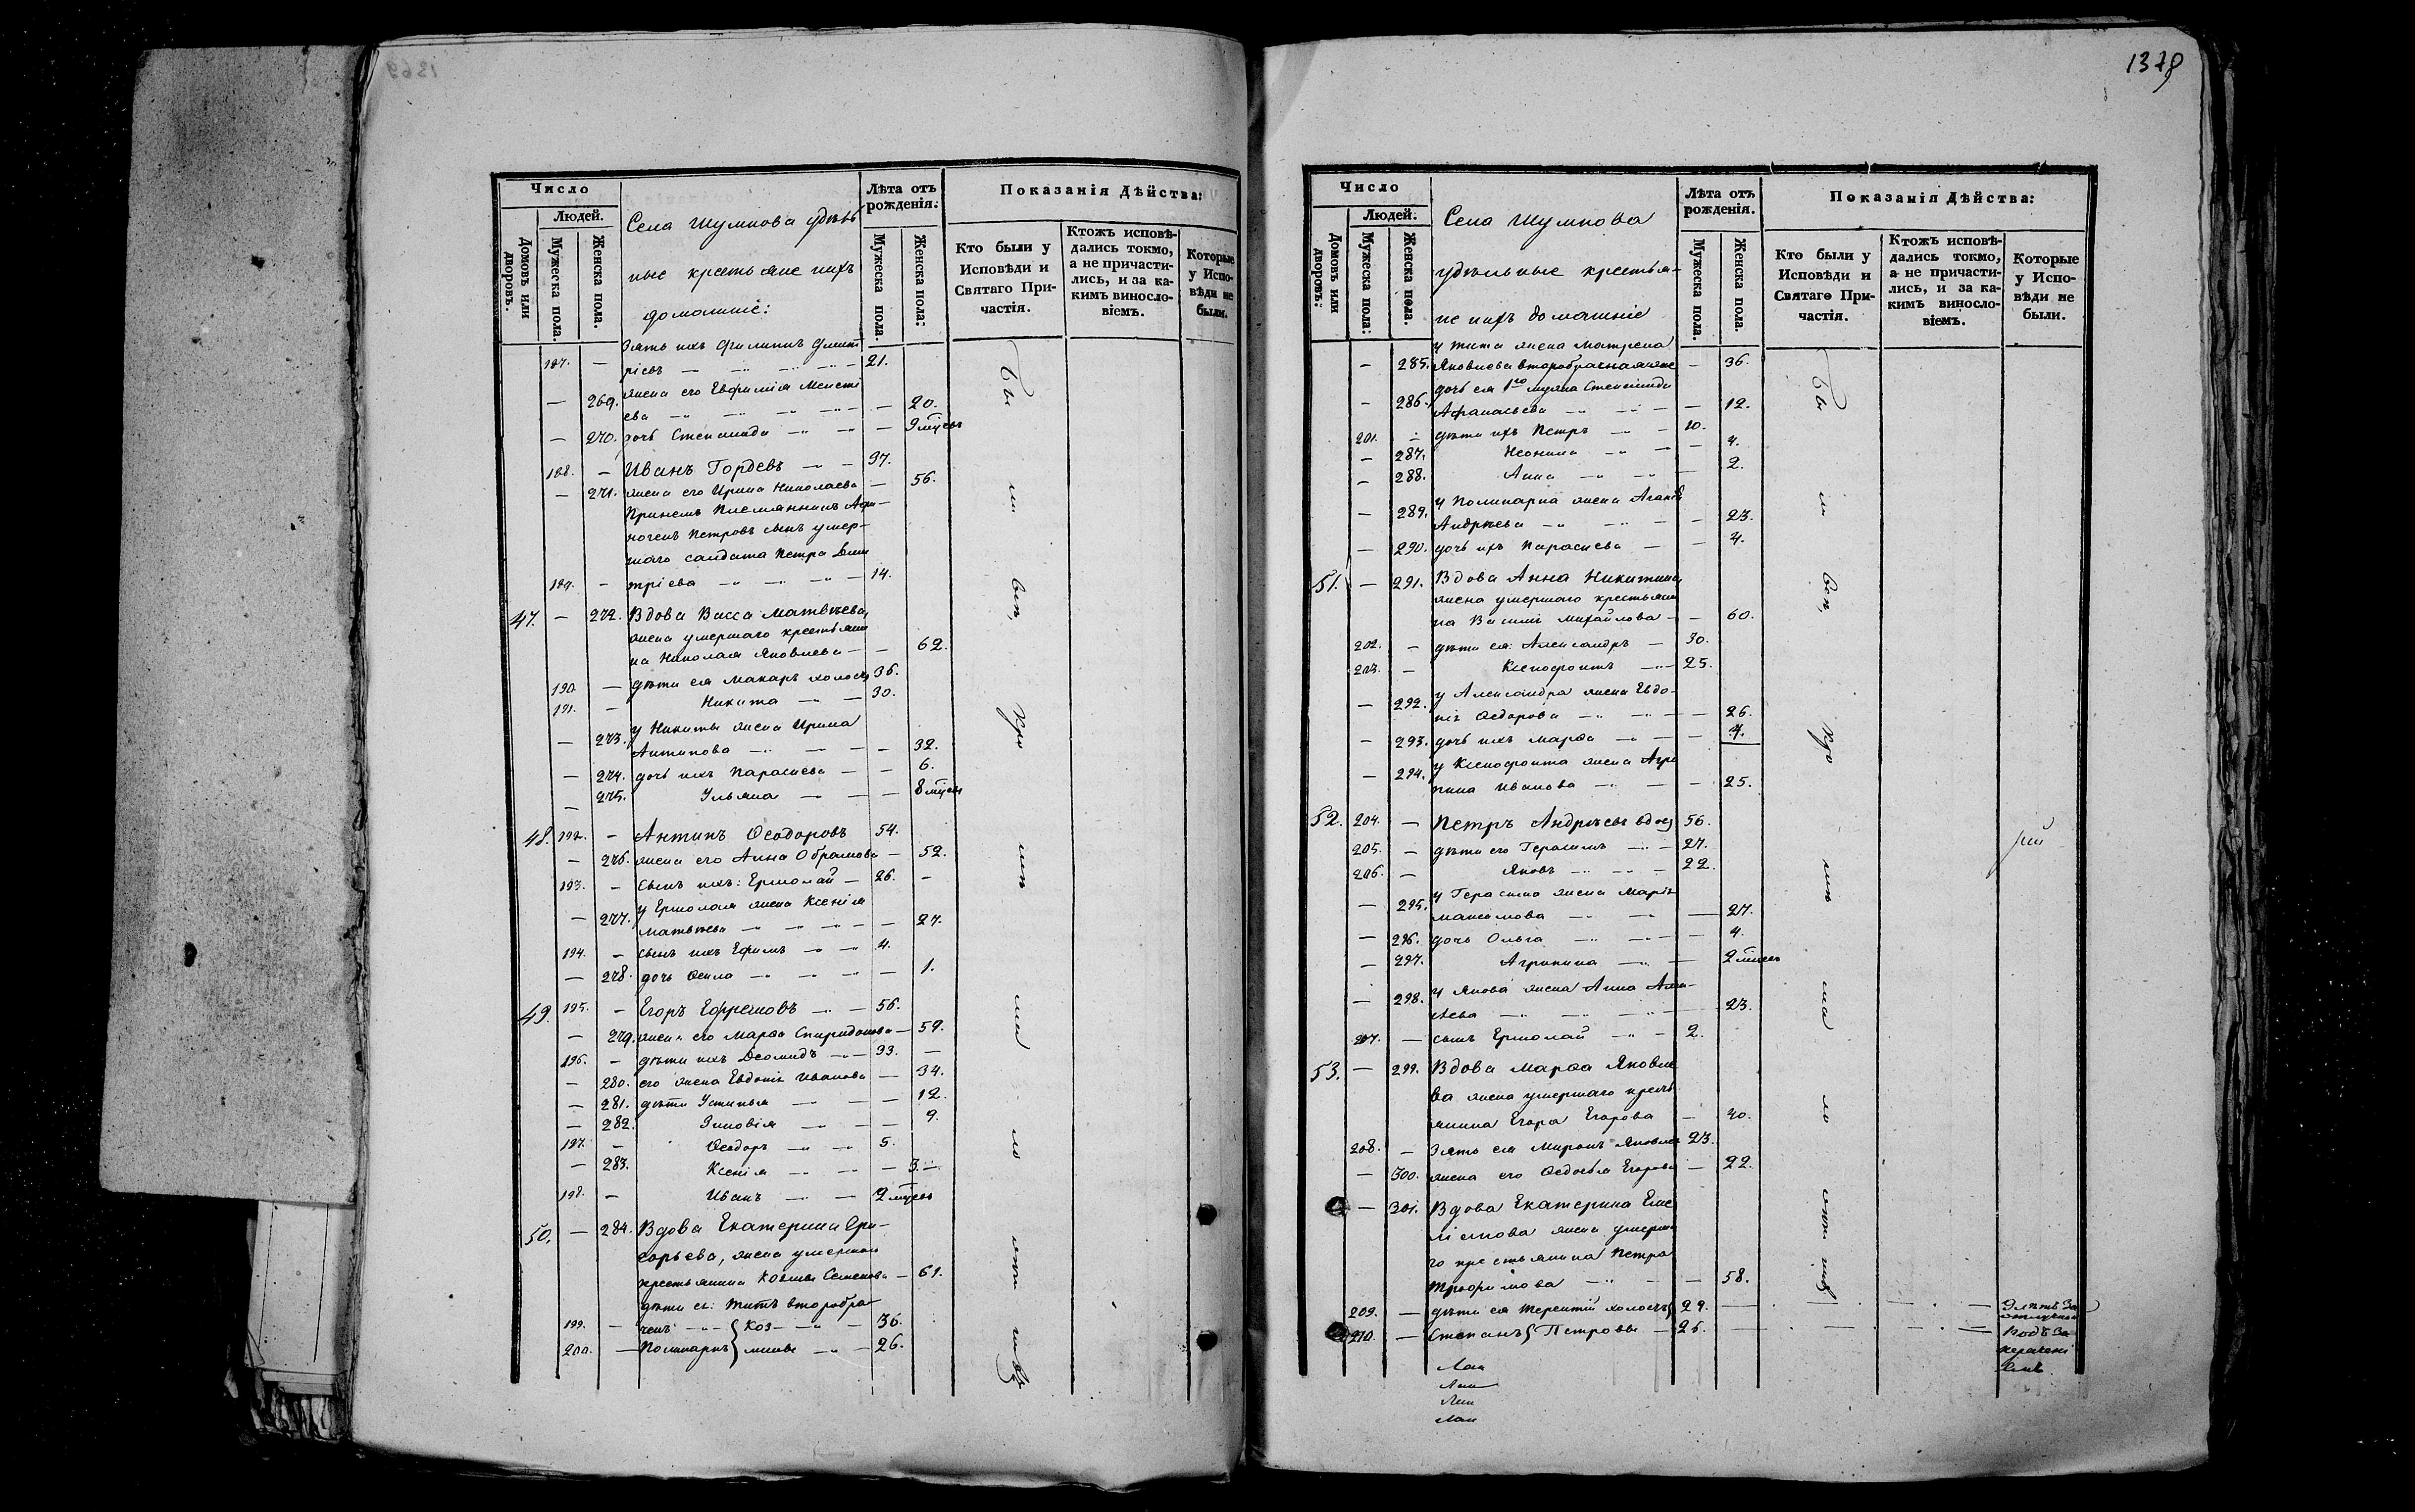 Число
Людей.
Домовъ или дворовъ.
Мужеска пола.
Женска пола.
Села Шумкова удѣль
ные крестьяне ихъ
домашніе:
Лѣта отъ рожденія.
Мужеска пола.
Женска пола:
Показанія Дѣйства:
Кто были у Исповѣди и Святаго Причастія.
Ктожъ исповѣдались токмо, а не причастились, и за какимъ винословіемъ.
Которые у Исповѣди не были.
Зять ихъ Филипъ Дмит
187. — ріевъ — 21.
жена его Евфимія
— 269. ева — 20.
— 270. дочь Степанида — 9 мцевъ
188. — Иванъ Гордѣевъ — 37.
— 271. жена его Ирина Николаева — 56.
Пріемъ Племянникъ Афи-
ногенъ Петровъ сынъ умер-
шаго салдата Петра Дми
189. — тріева — 14.
47. — 272. Вдова Васса Матвѣева,
жена умершаго крестьяни
на Николая Яковлева — 62.
190. — дѣти ея Макаръ холостъ 36.
191. — Никита — 30.
— 273. у Никиты жена Ирина
Антипова — 32.
— 274. дочь ихъ Параскева — 6.
— 275. Ульяна — 8 мцевъ
48. 192. — Антипъ Ѳеодоровъ 54.
— 276. жена его Анна Обрамова — 52.
193. — сынъ ихъ: Ермолай — 26. —
— 277. у Ермолая жена Ксенія
Матвѣева — 27.
194. — сынъ ихъ Ефимъ — 4.
— 278. дочь Ѳекла — 1.
49. 195. — Егоръ Ефремовъ — 56.
— 279. жена его Марѳа Спиридонова — 59.
196. — дѣти ихъ Деомидъ — 33. —
— 280. его жена Евдокія Иванова — 34.
— 281. дѣти Устинья — 12.
— 282. Зиновія — 9.
197. — Ѳеодоръ — 5.
— 283. Ксенія — 3. —
198. — Иванъ — 2 мцевъ
50. — 284. Вдова Екатерина Гри-
горьева, жена умершаго
крестьянина Козьмы Семенова — 61.
дѣти ея: Титъ второбра
199. — ченъ — } Коз — 36.
200. — Поликарпъ } мины — 26.
1379
Число
Людей.
Домовъ или дворовъ:
Мужеска пола:
Женска пола.
Села Шумкова
удѣльные крестья-
не ихъ домашніе
Лѣта отъ рожденія.
Мужеска пола.
Женска пола.
Показанія Дѣйства:
Кто были у Исповѣди и Святаго Причастія.
Ктожъ исповѣдались токмо, а не причастились, и за какимъ винословіемъ.
Которые у Исповѣди не были.
у Тита жена Матрена
— 285. Яковлева второбрачная — 36.
дочь ея 1го мужа Степанида
— 286. Афанасьева — 12.
201. — дѣти ихъ Петръ — 10.
— 287. Неонила — 4.
— 288. Анна — 2.
у Поликарпа жена Агафія
— 289. Андрѣева — 23.
— 290. дочь ихъ Параскева — 4.
51. — 291. Вдова Анна Никитина
жена умершаго крестьяни
на Василія Михайлова — 60.
202. — дѣти ея: Александръ — 30.
203. — Ксенофонтъ — 25.
— 292. у Александра жена Евдо-
кія Ѳедорова — 26.
— 293. дочь ихъ Марѳа — 4.
— 294. у Ксенофонта жена Агри
пина Иванова — 25.
52. 204. — Петръ Андрѣевъ вдов 56.
205. — дѣти его Герасимъ — 27.
206. — Яковъ — 22.
— 295. у Герасима жена Марія
Максимова — 27.
— 296. дочь Ольга — 4.
— 297. Агрипина — 2 мцевъ
— 298. у Якова жена Анна Але-
ѣева — 23.
207. — сынъ Ермолай — 2.
53. — 299. Вдова Марѳа Яковле
ва жена умершаго кресть
янина Егора Егорова — 40.
208. — Зять ея Миронъ Яковлев 23.
— 300. жена его Ѳедосья Егорова — 22.
— 301. Вдова Екатерина Еме
ліянова жена умерша
го крестьянина Петра
Трофимова — 58.
209. — дѣти ея Терентій холостъ } 29.
210. — Степанъ } Петровы — 26.